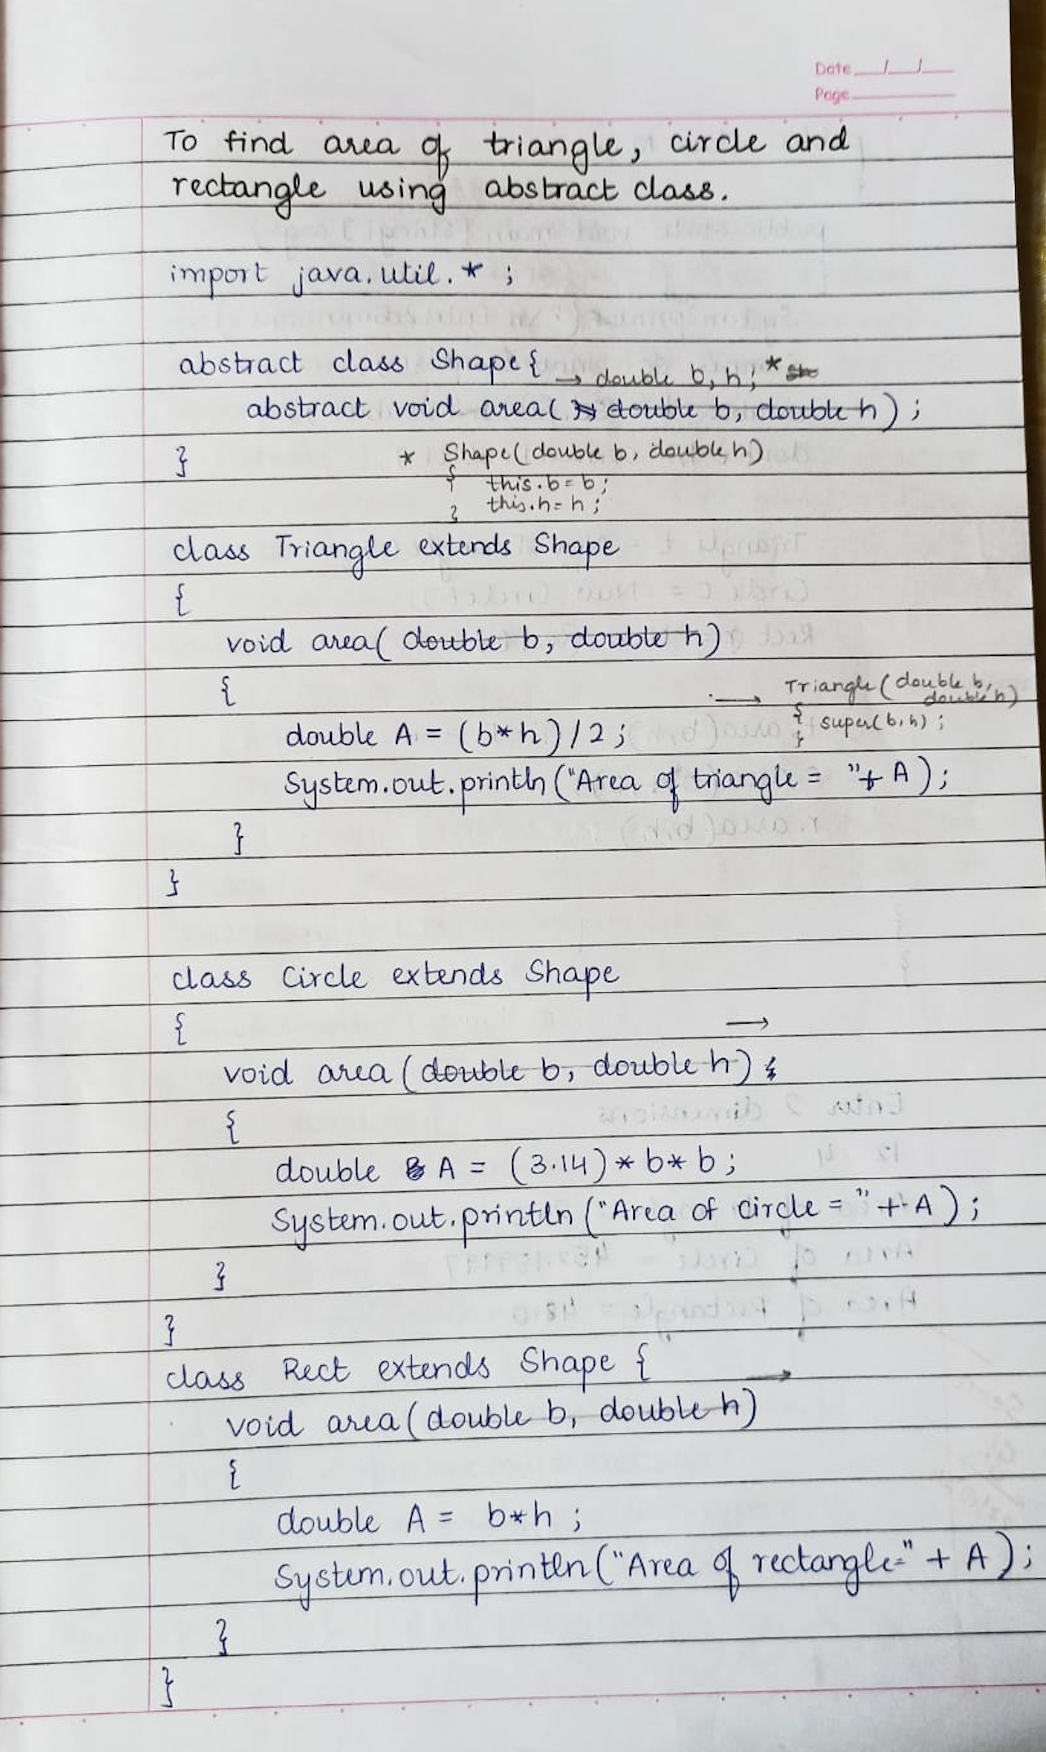 Date
Page
To find area of triangle, circle and
rectangle using abstract class.
import java.util.* ;
abstract class Shape{ → double b, h; *
abstract void area( double b, double h) ;
}
* Shape(double b, double h)
{ this.b = b;
} this.h = h ;
class Triangle extends Shape
{
void area( double b, double h)
{
→ Triangle (double b,
double h)
{ super(b,h) ;
}
double A = (b*h)/2 ;
System.out.println("Area of triangle = "+ A) ;
}
}
class Circle extends Shape
{
→
void area (double b, double h)
{
double A = (3.14) * b * b ;
System.out.println ("Area of circle = " + A ) ;
}
}
class Rect extends Shape {
→
void area (double b, double h)
{
double A = b*h ;
System.out.println("Area of rectangle=" + A ) ;
}
}